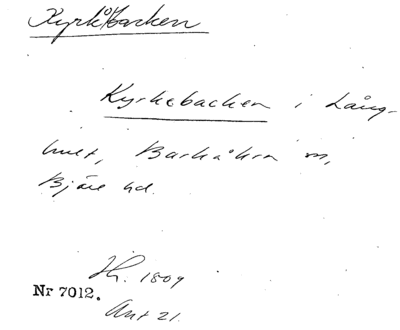 Kyrkobacken
Kyrkebacken i Lång-
hult, Barkåkra sn,
Bjäre hd.
Hr. 1809
Nr 7012.
Ant 21.